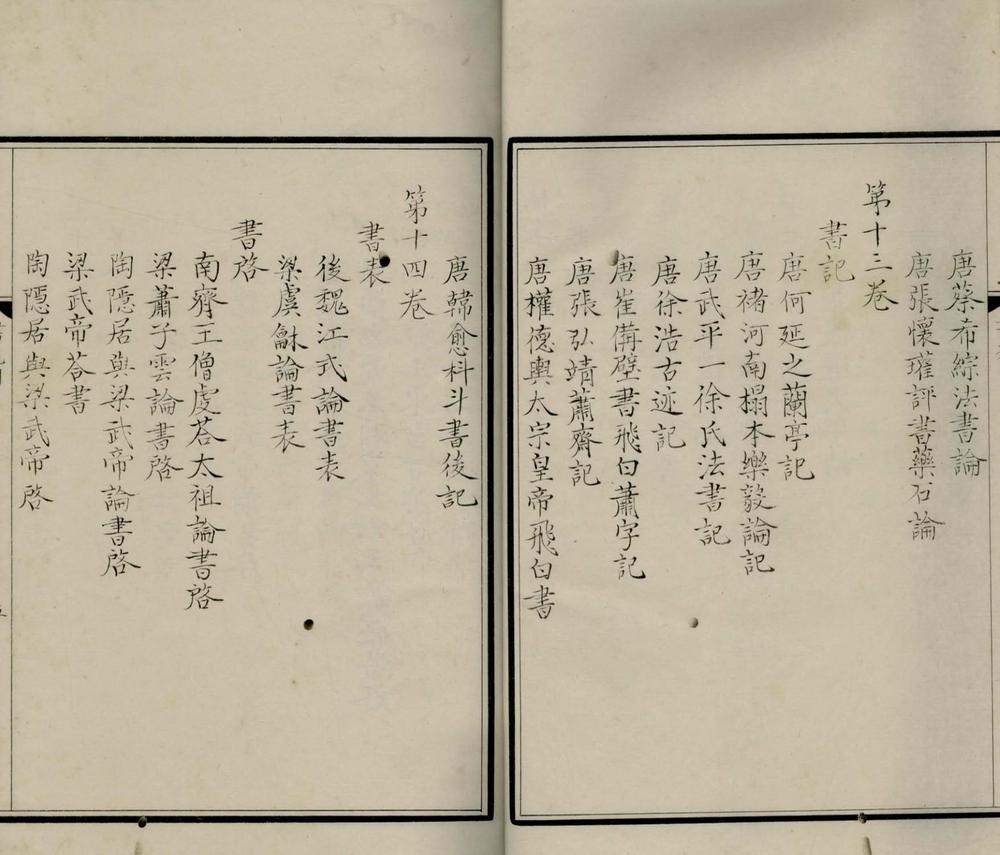 唐蔡希綜法書論
唐張懷瓘評書藥石論
第十三卷
書記
唐何延之蘭亭記
唐褚河南搨本樂毅論記
唐武平一徐氏法書記
唐徐浩古迹記
唐崔備壁書飛白蕭字記
唐張弘靖蕭齋記
唐權德輿太宗皇帝飛白書
唐韓愈科斗書後記
第十四卷
書表
後魏江式論書表
梁虞龢論書表
書啓
南齊王僧虔荅太祖論書啓
梁蕭子雲論書啓
陶隱居與梁武帝論書啓
梁武帝荅書
陶隱居與梁武帝啓